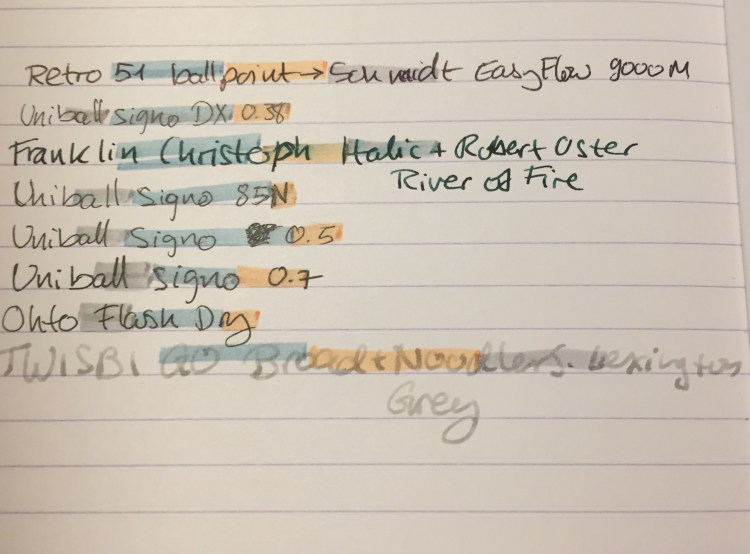 Retro 51 ballpoint → Schmidt EasyFlow 9000M
Uniball Signo DX 0.38
Franklin Christoph Italic + Robert Oster
River of Fire
Uniball Signo 85N
Uniball Signo 0.5
Uniball Signo 0.7
Ohto Flash Dry
TWISBI GO Broad + Noodlers. Lexington
Grey